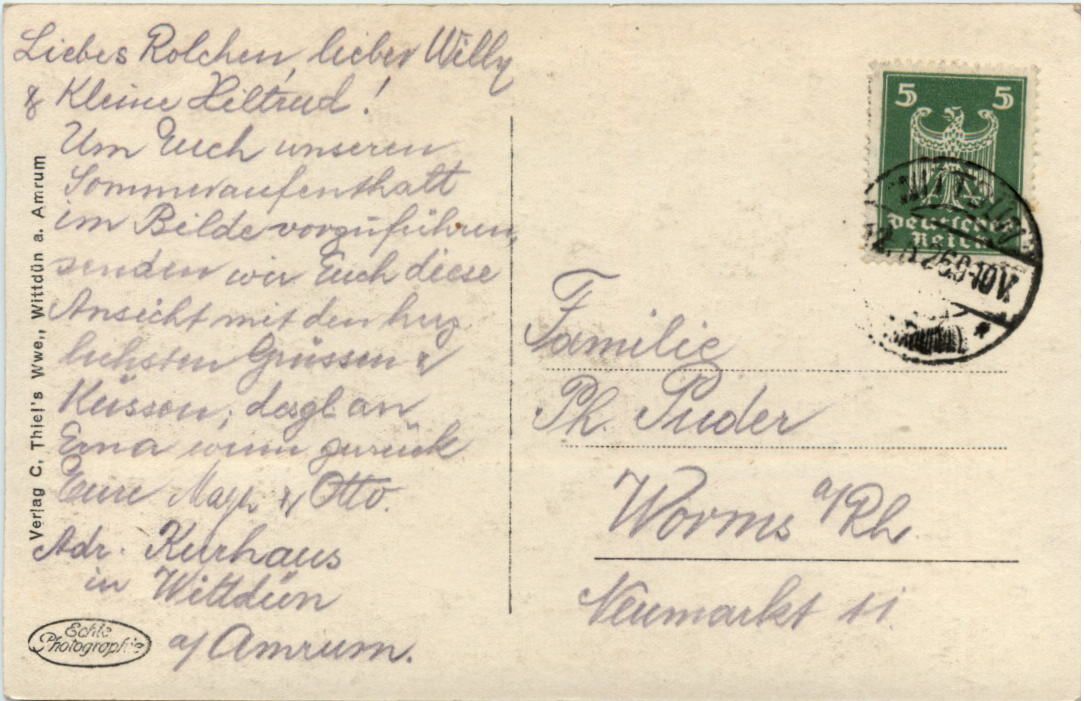 Liebes Rolchen, lieber Willy
& Kleine Hiltrud!
Um Euch unseren
Sommeraufenthalt
im Bilde vorzuführen,
senden wir Euch diese
Ansicht mit den herz
lichsten Grüssen &
Küssen, desgl an
Erna wenn zurück
Eure & Otto.
Adr. Kurhaus
in Wittdün
a/Amrum.
Verlag C. Thiel's Wwe., Wittdün a. Amrum
Echte
Photographie
5 5
Deutsches
Reich
Familie
Ph. Puder
Worms a/Rh.
Neumarkt 11.